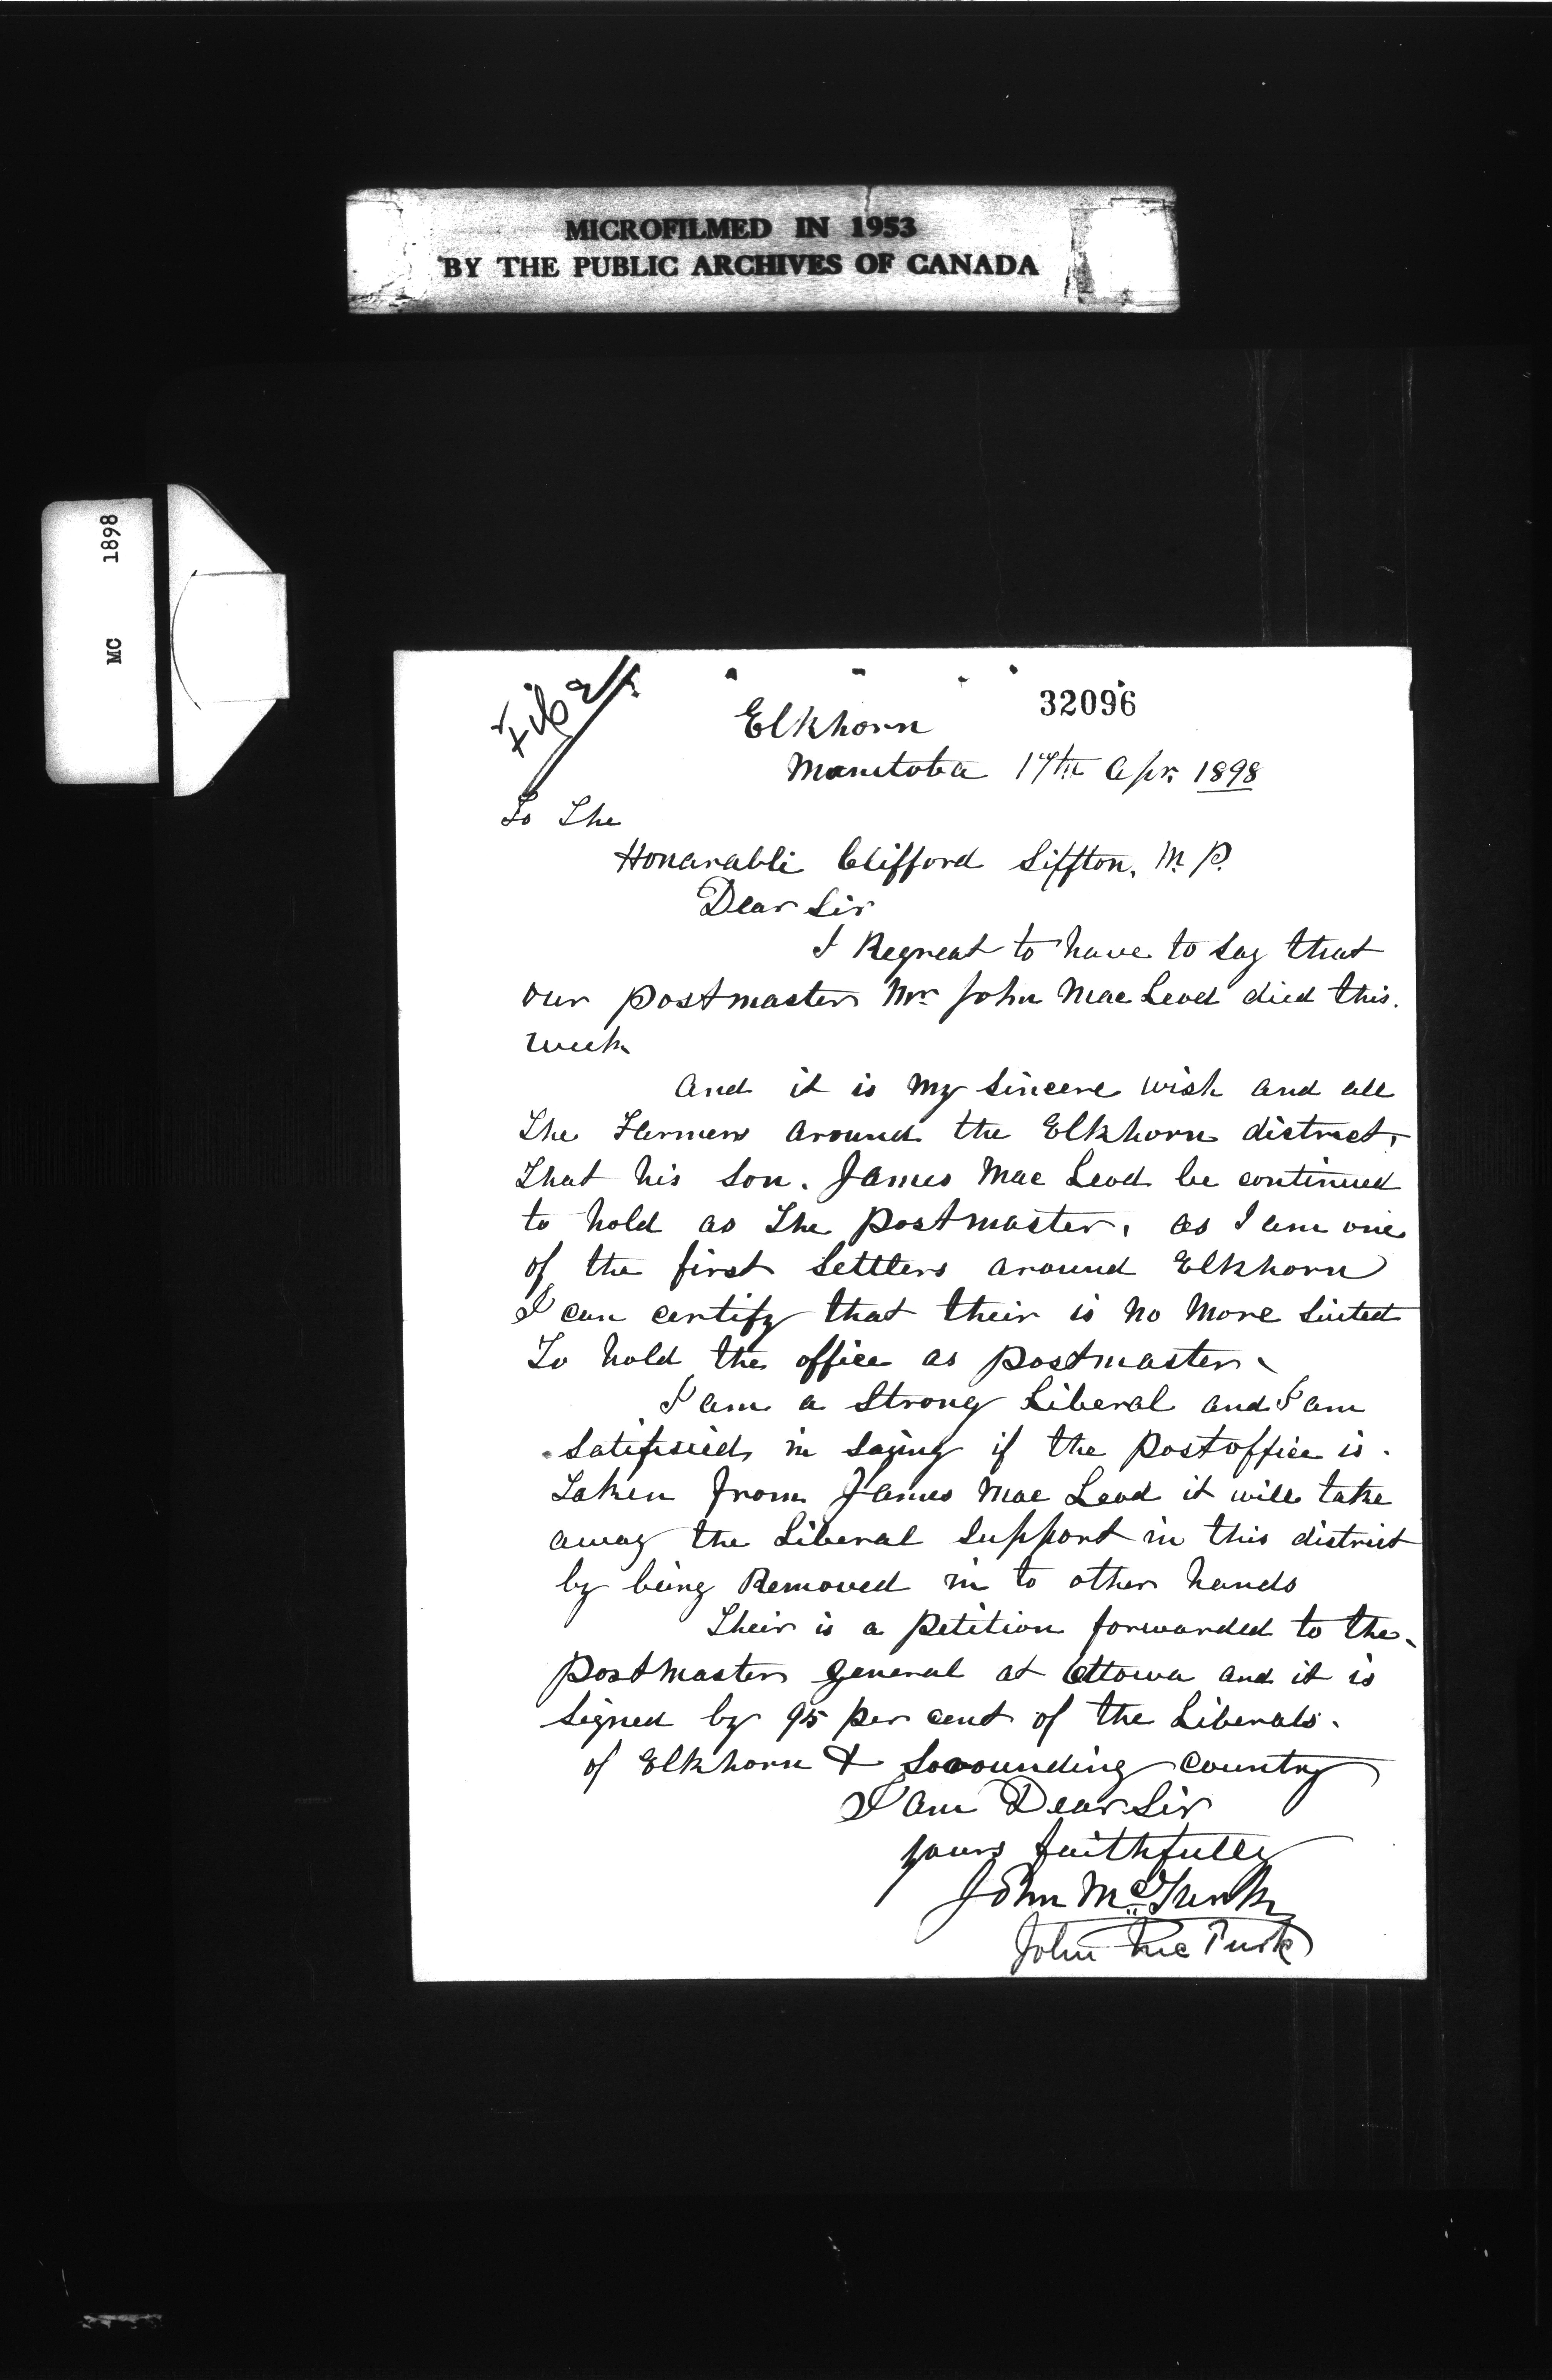 MICROFILMED IN 1953
BY THE PUBLIC ARCHIVES OF CANADA
MC 1898
32096
Elkhorn
Manitoba 19th Apr. 1898
To The
Honarable Clifford Siffton. M. P.
Dear Sir
I Regreat to have to say that
our postmaster Mr John Mac Leod died this.
week
and it is my sincere wish and all
The Farmers around the Elkhorn district,
That his son. James Mac Leod be continued
to hold as The postmaster, as I am one
of the first Settlers around Elkhorn
I can certify that their is no more suited
To hold the office as postmaster.
I am a strong Liberal and I am
satifisied in saying if the postoffice is.
Taken from James Mac Leod it will take
away the Liberal support in this district
by being Removed in to other hands
Their is a petition forwarded to the
postmaster general at Ottowa and it is
signed by 95 per cent of the Liberals.
of Elkhorn & Sorounding country
I am Dear Sir
yours faithfully
John McTurk
John McTurk